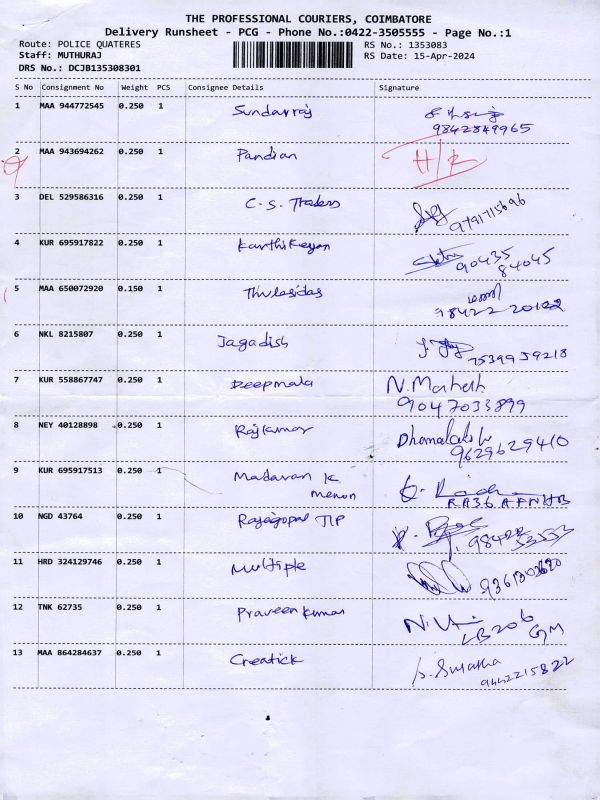 THE PROFESSIONAL COURIERS, COIMBATORE
Delivery Runsheet - PCG - Phone No.:0422-3505555 - Page No.:1
Route: POLICE QUATERES RS No.: 1353083
Staff: MUTHURAJ RS Date: 15-Apr-2024
DRS No.: DCJB135308301
S No Consignment No Weight PCS Consignee Details Signature
1 MAA 944772545 0.250 1 Sundarraj
9842849965
2 MAA 943694262 0.250 1 Pandian
3 DEL 529586316 0.250 1 C.S. Traders
9791715696
4 KUR 695917822 0.250 1 Karthikeyan
90435
84045
5 MAA 650072920 0.150 1 Thulasidas
98422 20102
6 NKL 8215807 0.250 1 Jagadish
7539959218
7 KUR 558867747 0.250 1 Deepmala N. Mahesh
9047033899
8 NEY 40128898 0.250 1 Rajkumar
9629629410
9 KUR 695917513 0.250 1 Madavan K
Menon
10 NGD 43764 0.250 1 Rajagopal TIP
11 HRD 324129746 0.250 1 Multiple
12 TNK 62735 0.250 1 Praveen Kumar
13 MAA 864284637 0.250 1 Creatick
9442215822